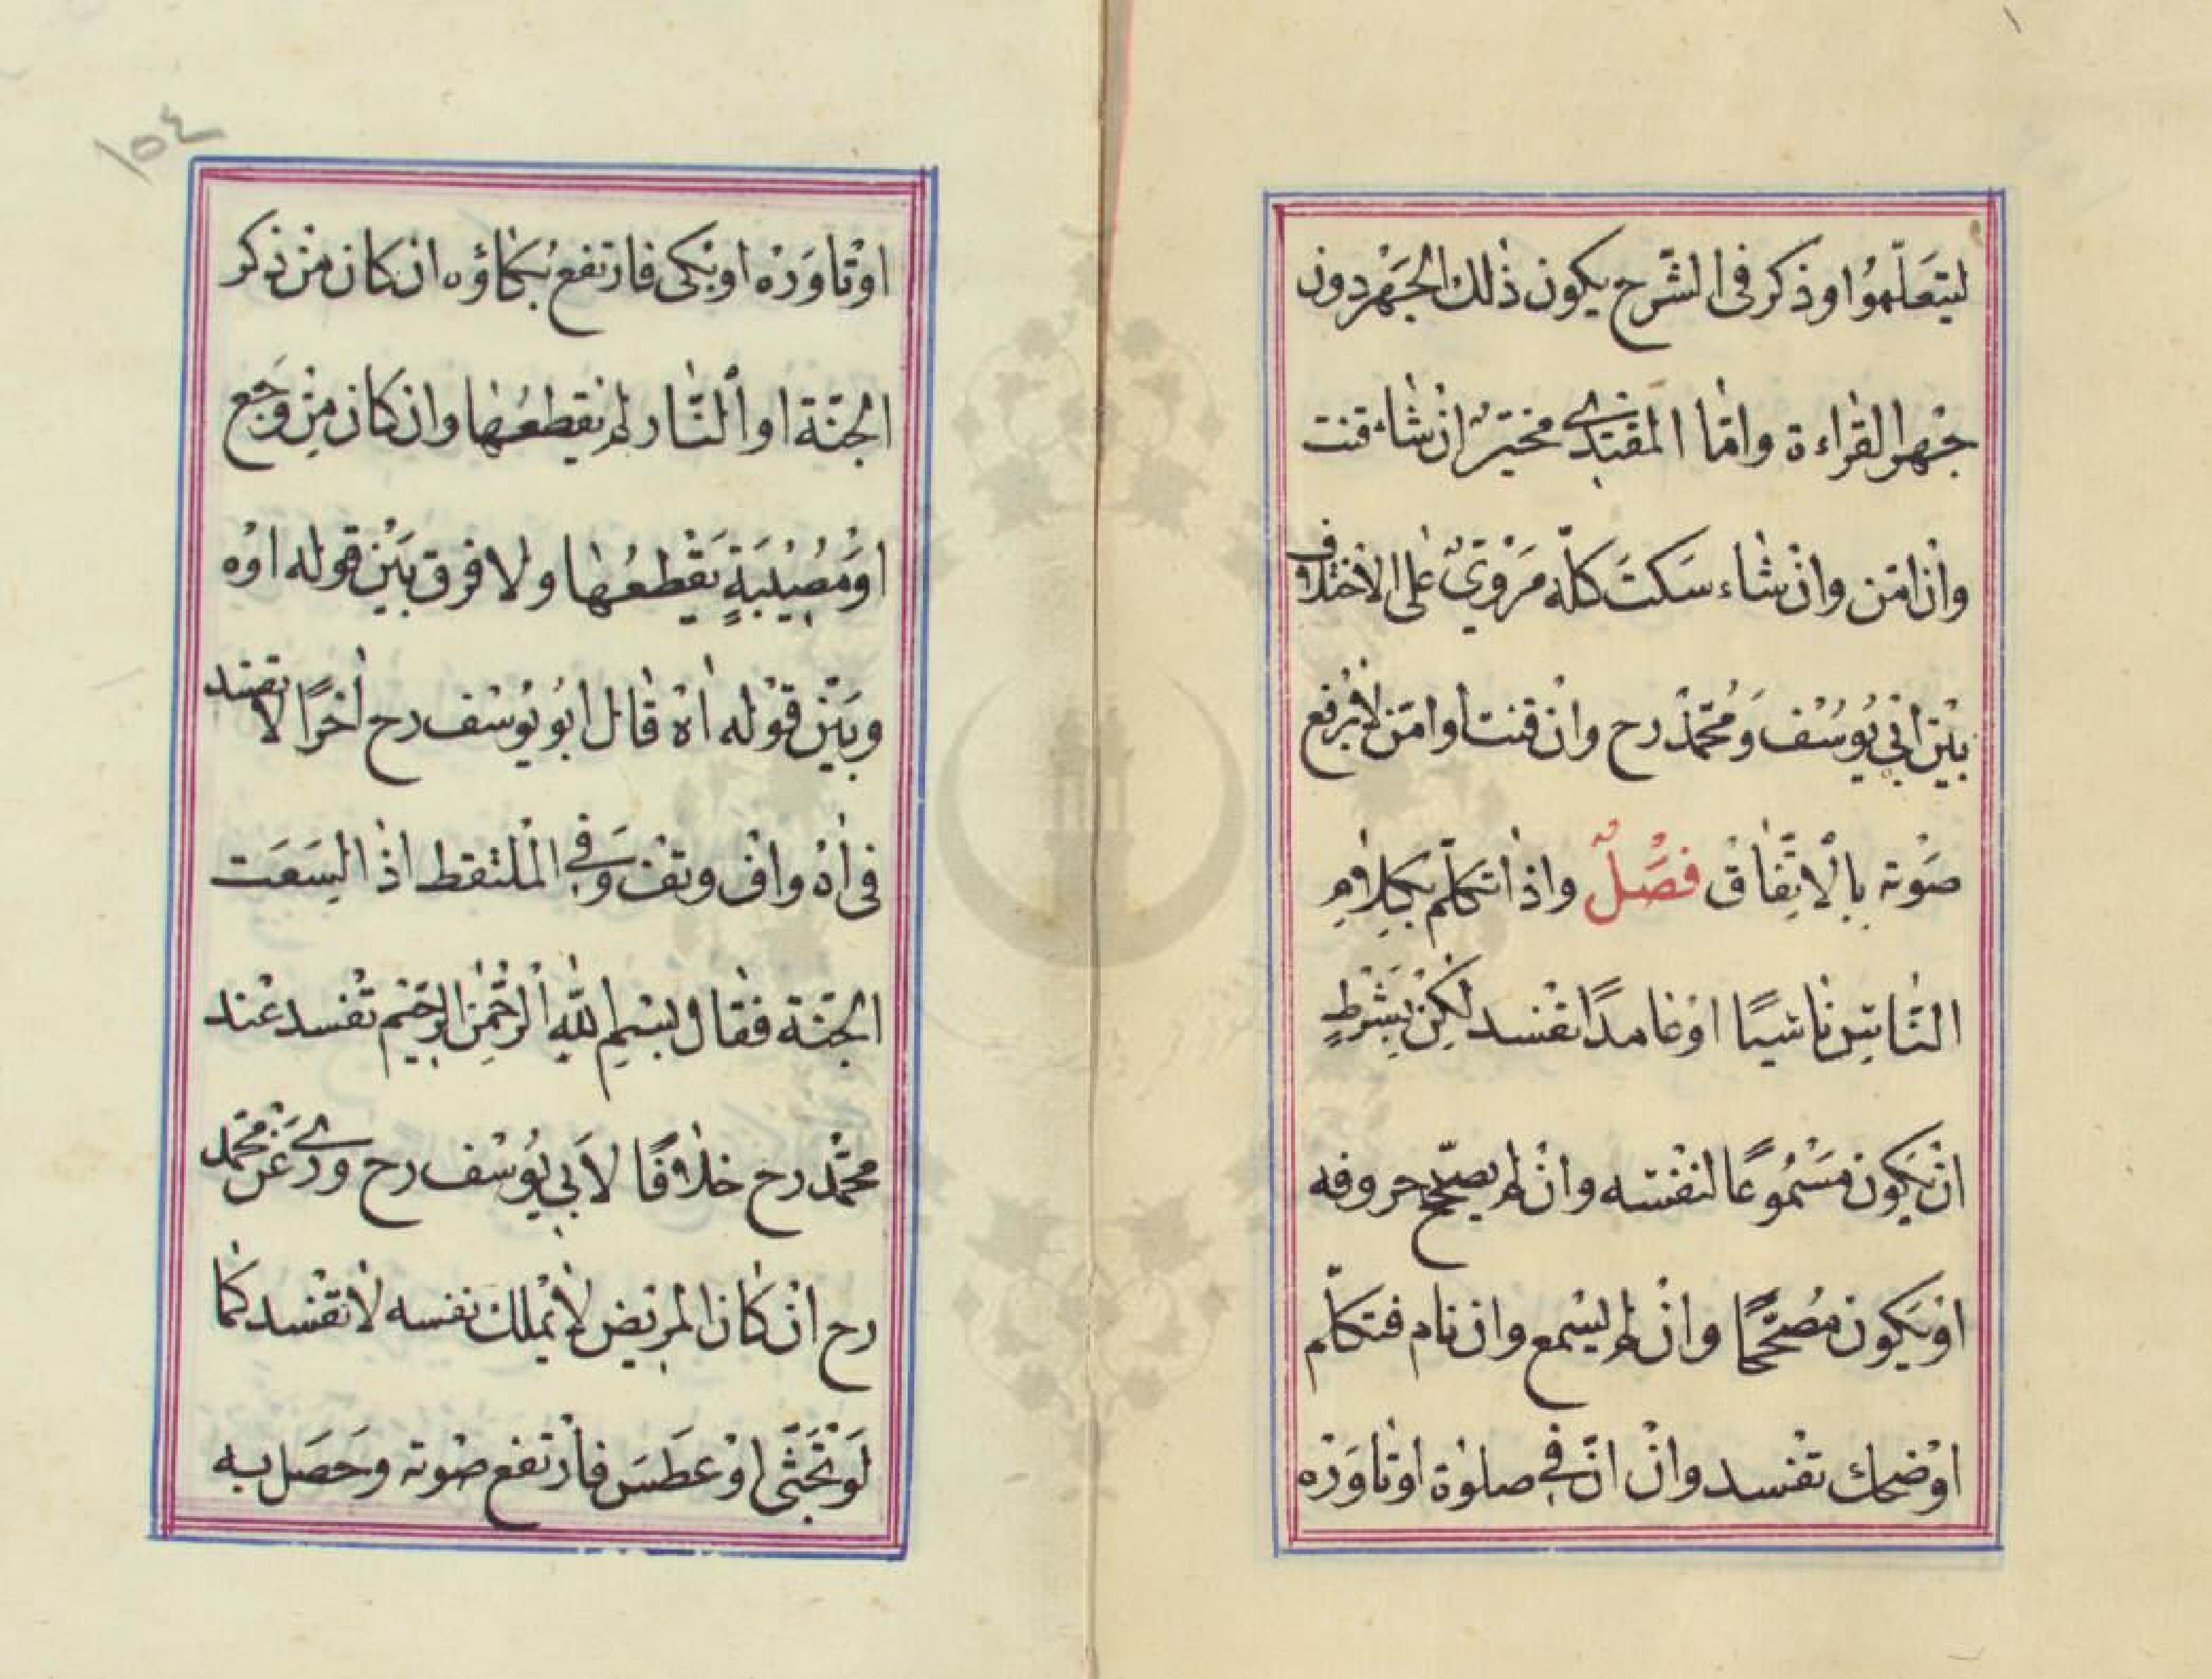 ليتعلّموا وذكر فى الشّرح يكون ذلك الجهر دون
جهر القراءة وامّا المقتدى مخيّر ان شاء قنت
وان امّن وان شاء سكت كلّه مروىّ على الاختلاف
بين ابى يوسف ومحمّد رح وان قنت او امّن لا يرفع
صوته بالاتّفاق فصل واذا تكلّم بكلام
النّاس ناسيًا او عامدًا تفسد لكن بشرط
ان يكون مسموعًا لنفسه وان لم يصحّح حروفه
او يكون مصحّحًا وان لم يسمع وان نام فتكلّم
او ضحك تفسد وان انّ فى صلوة او تاوّه
١٥٤
او تاوّه او بكى فارتفع بكاؤه ان كان من ذكر
الجنّة او النّار لم يقطعها وان كان من وجع
او مصيبة يقطعها ولا فرق بين قوله اوه
وبين قوله اه قال ابو يوسف رح اخرًا لا تفسد
فى اه واف وتف وفى الملتقط اذا لسعت
الجنّة فقال بسم الله الرّحمن الرّحيم تفسد عند
محمّد رح خلافًا لابى يوسف رح وروى عن محمّد
رح ان كان المريض لا يملك نفسه لا تفسد كما
لو تجشّى او عطس فارتفع صوته وحصل به